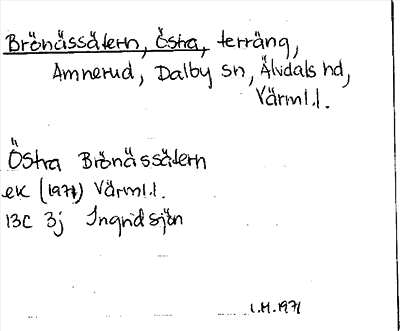 Brönässätern, Östra, terräng,
Amnerud, Dalby sn, Älvdals hd,
Värml.l.
Östra Brönässätern
ek (1971) Värml.l.
13C 3j Ingridsjön
I.H. 1971